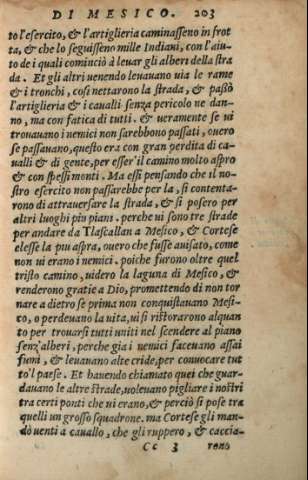 DI MESICO. 203
to l'esercito, & l'artiglieria caminasseno in frot
ta, & che lo seguisseno mille Indiani, con l'aiu-
to de i quali cominciò à leuar gli alberi della stra
da. Et gli altri uenendo leuauano uia le rame
& i tronchi, così nettarono la strada, & passò
l'artiglieria & i caualli senza pericolo ne dan-
no, ma con fatica di tutti. & ueramente se ui
trouauano i nemici non sarebbono passati, ouero
se passauano, questo era con gran perdita di ca-
ualli & di gente, per esser'il camino molto aspro
& con spessi monti. Ma essi pensando che il no-
stro esercito non passarebbe per la, si contenta-
rono di attrauersare la strada, & si posero per
altri luoghi piu piani. perche ui sono tre strade
per andare da Tlascallan a Mesico, & Cortese
elesse la piu aspra, ouero che fusse auisato, come
non ui erano i nemici. poiche furono oltre quel
tristo camino, uidero la laguna di Mesico, &
renderono gratie a Dio, promettendo di non tor
nare a dietro se prima non conquistauano Mesi-
co, o perdeuano la uita, ui si ristorarono alquan
to per trouarsi tutti uniti nel scendere al piano
senz'alberi, perche gia i nemici faceuano assai
fumi, & leuauano alte cride, per conuocare tut
to'l paese. Et hauendo chiamato quei che guar-
dauano le altre strade, uoleuano pigliare i nostri
tra certi ponti che ui erano, & perciò si pose tra
quelli un grosso squadrone. ma Cortese gli man-
dò uenti a cauallo, che gli ruppero, & caccia-
Cc 3 rono